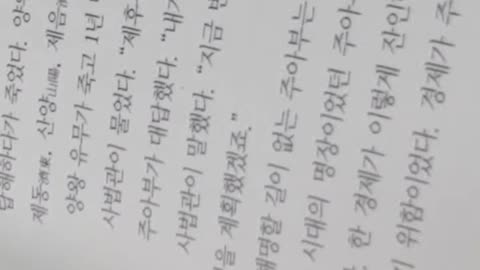 답해하다가 죽었다. 양
제동濟東, 산양山陽, 제음
양왕 유무가 죽고 1년
사법관이 물었다. "제후
주아부가 대답했다. "내가
사법관이 말했다. "지금
을 계획했겠죠."
해명할 길이 없는 주아부는
시대의 명장이었던 주아
한 경제가 이렇게 잔인
위함이었다. 경제가 주